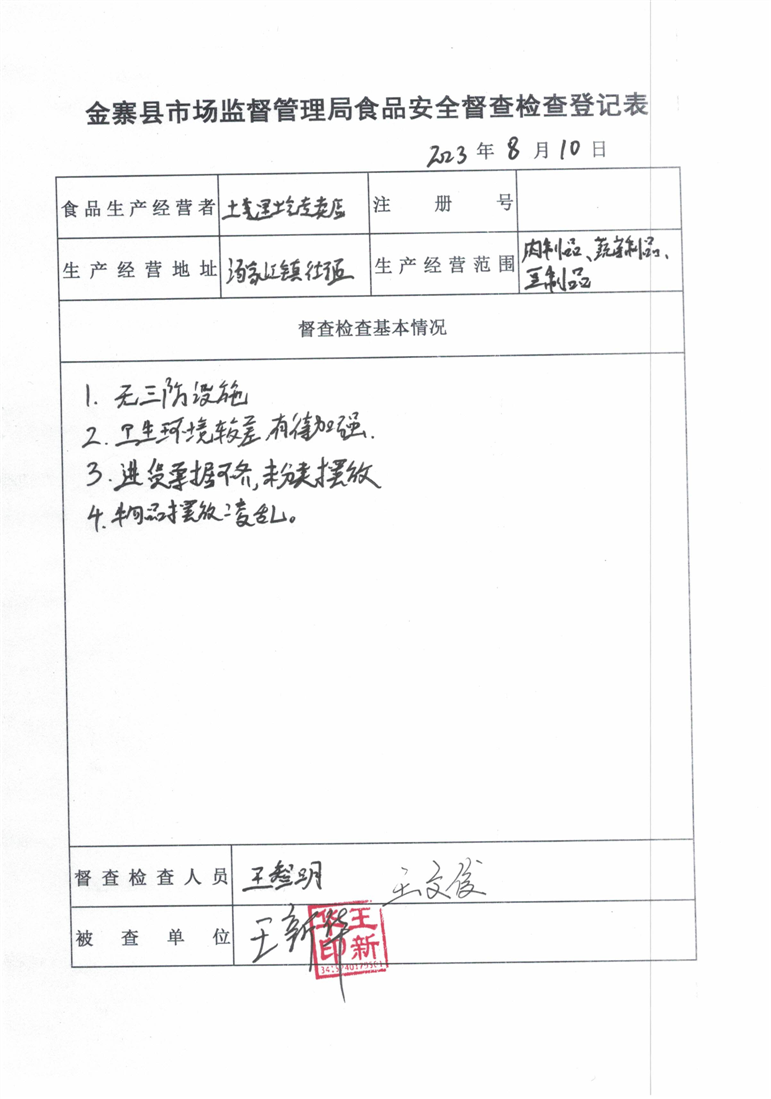 金寨县市场监督管理局食品安全督查检查登记表
2023年8月10日
食品生产经营者 土 专卖店 注册号
生产经营地址 汤家汇镇 生产经营范围 肉制品、蔬菜制品、
豆制品
督查检查基本情况
1. 无三防设施
2. 卫生环境较差 有待加强.
3. 进货票据不齐,未分类摆放
4. 物品摆放凌乱。
督查检查人员 王 明 王文俊
被查单位 王新华
华王
印新